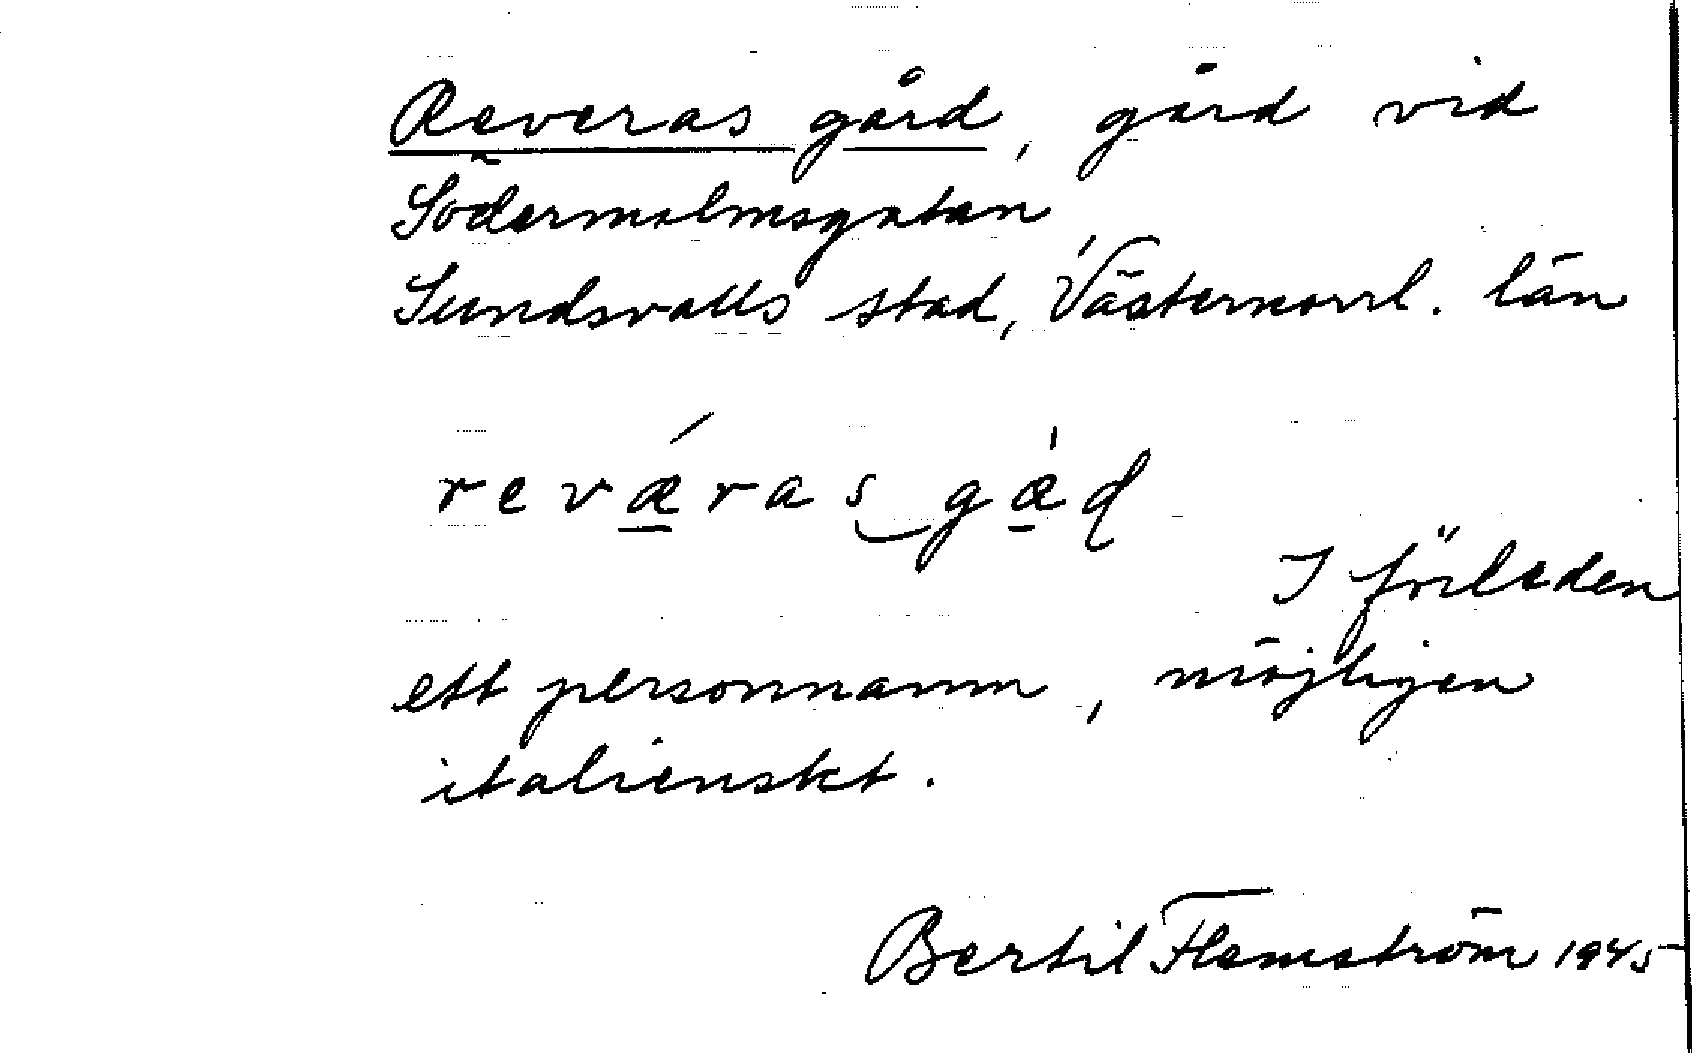 Reveras gård, gård vid
Södermalmsgatan,
Sundsvalls stad, Västernorrl. län
reværas gåd
I förleden
ett personnamn, möjligen
italienskt.
Bertil Flemström 1945